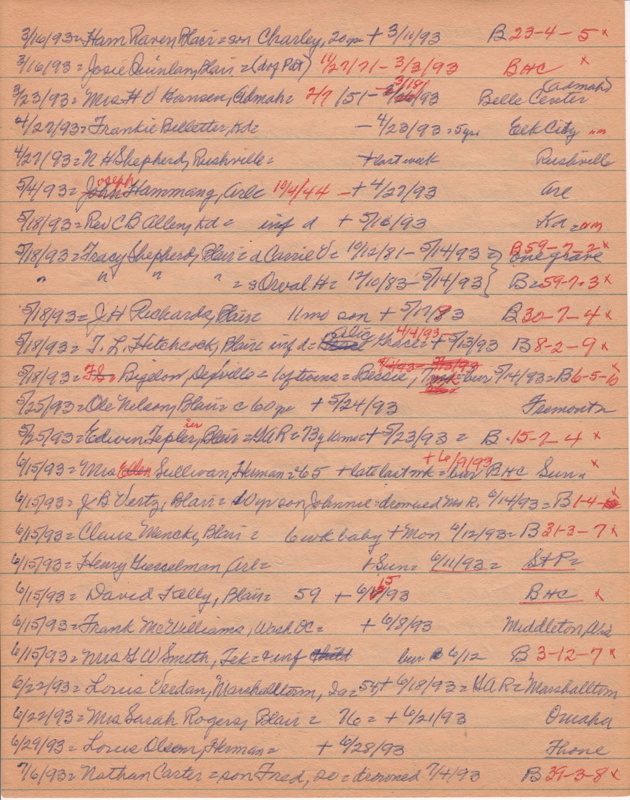 3/16/93 = Ham Raven, Blair = son Charley, 20 yr + 3/11/93 B 23-4-5 x
3/16/93 = Josie Quinlan, Blair = (drg Pat) 11/27/71 - 3/3/93 B HC x
3/23/93 = Mrs H V Hansen, Admah = 2/7/51 - 3/18/93 Belle Center (Admah)
4/27/93 = Frankie Belletter, Kd = - 4/23/93 = 5 yr Elk City nm
4/27/93 = N H Shepherd, Rushville = + last week Rushville
5/4/93 = Joseph Hammang, Arl = 10/4/44 - + 4/27/93 Arl
5/18/93 = Rev C B Allen, Kd = inf d + 5/16/93 Kd = nm
5/18/93 = Tracy Shepherd, Blair = d Carrie V = 10/12/81 - 5/14/93 = } one grave B 59-7-2 x
" " " " = s Orval H = 12/10/83 - 5/14/93 } B = 59-7-3 x
5/18/93 = J H Richards, Blair 11 mo son + 5/17/93 B 30-7-4 x
5/18/93 = T. L. Hitchcock, Blair inf d = Grace = 4/4/93 + 5/13/93 B 8-2-9 x
5/18/93 = Bigelow, = 1 of twins = Bessie, bur 5/14/93 = B 6-5-
5/25/93 = Ole Nelson, Blair = c 60 yr + 5/24/93 Fremont
5/25/93 = Edwin Tepler, Blair = GAR = 73 y + 5/23/93 = B 15-7-4 x
6/15/93 = Mrs Sullivan, Herman = 65 + late last wk = + 6/9/93 bur B HC Sun x
6/15/93 = J B Vertz, Blair = 10 yr son Johnnie = drowned Mo R. 6/14/93 = B 1-4-
6/15/93 = Claus Mencke, Blair = 6 wk baby + Mon 6/12/93 = B 31-3-7 x
6/15/93 = Henry Gieselman, Arl = + Sun = 6/11/93 = St P =
6/15/93 = David Kelly, Blair = 59 + 6/15/93 B HC x
6/15/93 = Frank McWilliams, Wash DC = + 6/8/93 Middleton,
6/15/93 = Mrs G W Smith, Tek = inf bur 6/12 B 3-12-7 x
6/22/93 = Louis Verdan, Marshalltown, Ia = 54 + 6/18/93 = GAR = Marshalltown
6/22/93 = Mrs Sarah Rogers, Blair = 76 = + 6/21/93 Omaha
6/29/93 = Louis Olson, Herman = + 6/28/93
7/6/93 = Nathan Carter = son Fred, 20 = drowned 7/4/93 B 39-3-8 x